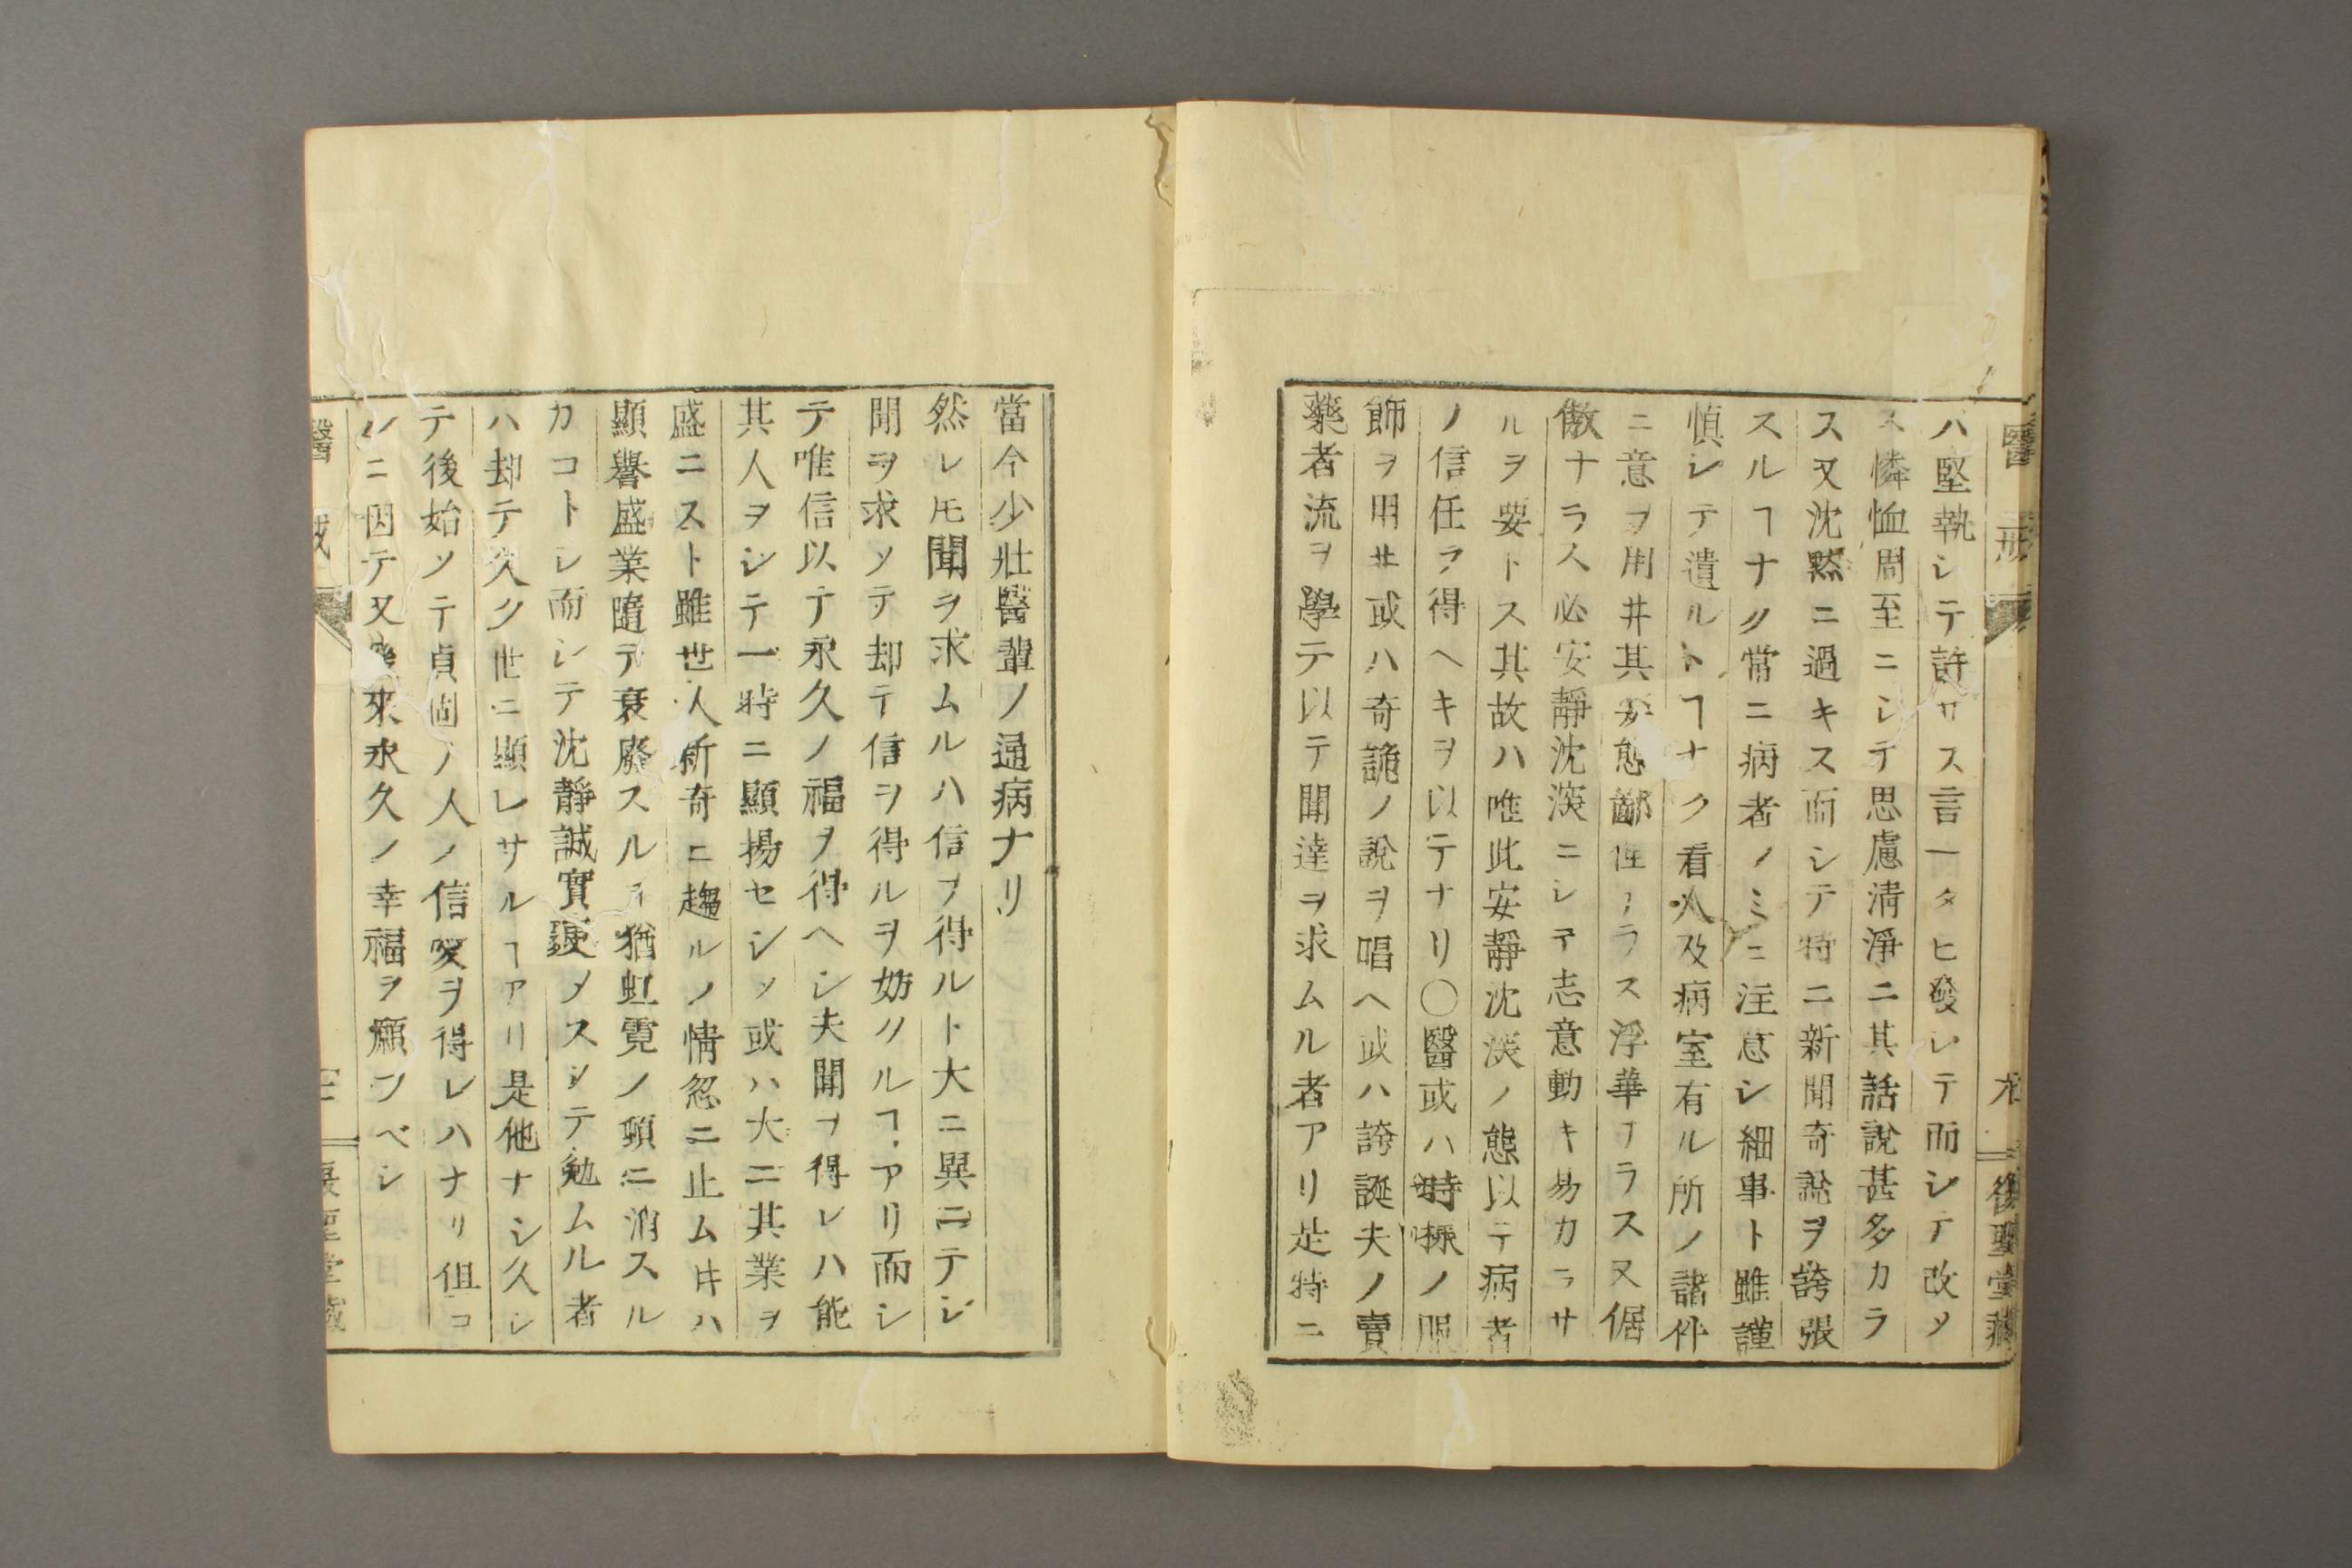 醫戒
九
後聖堂藏
ハ堅執シテ許サス言一タヒ發レテ而シテ改メ
ス憐恤周至ニシテ思慮淸淨ニ其話說甚多カラ
ス又沈黙ニ過キス而シテ特ニ新聞奇說ヲ誇張
スルヿナク常ニ病者ノミニ注意シ細事ト雖謹
慎シテ遺ルトヿナク看人及病室有ル所ノ諸件
ニ意ヲ用井其姿態鄙俚ナラス浮華ナラス又倨
傲ナラス必安靜沈淡ニシテ志意動キ易カラサ
ルヲ要トス其故ハ唯此安靜沈淡ノ態以テ病者
ノ信任ヲ得ヘキヲ以テナリ〇醫或ハ時樣ノ服
飾ヲ用井或ハ奇詭ノ說ヲ唱ヘ或ハ誇誕夫ノ賣
藥者流ヲ學テ以テ聞達ヲ求ムル者アリ是特ニ
當今少壯醫輩ノ通病ナリ
然レ𪜈聞ヲ求ムルハ信ヲ得ルト大ニ異ニテシ
聞ヲ求ソテ却テ信ヲ得ルヲ妨クルヿアリ而シ
テ唯信以テ永久ノ福ヲ得ヘシ夫聞ヲ得レハ能
其人ヲシテ一時ニ顯揚セシメ或ハ大ニ其業ヲ
盛ニスト雖世人新奇ニ趨ルノ情忽ニ止ム𪜈ハ
顯譽盛業隨テ衰廢スルヿ猶虹霓ノ頓ニ消スル
カコトシ而シテ沈靜誠實變メスシテ勉ムル者
ハ却テ久ク世ニ顯レサルヿアリ是他ナシ久シ
テ後始ソテ貞固ノ人ノ信愛ヲ得レハナリ但コ
レニ因テ又後來永久ノ幸福ヲ願フベシ
醫戒